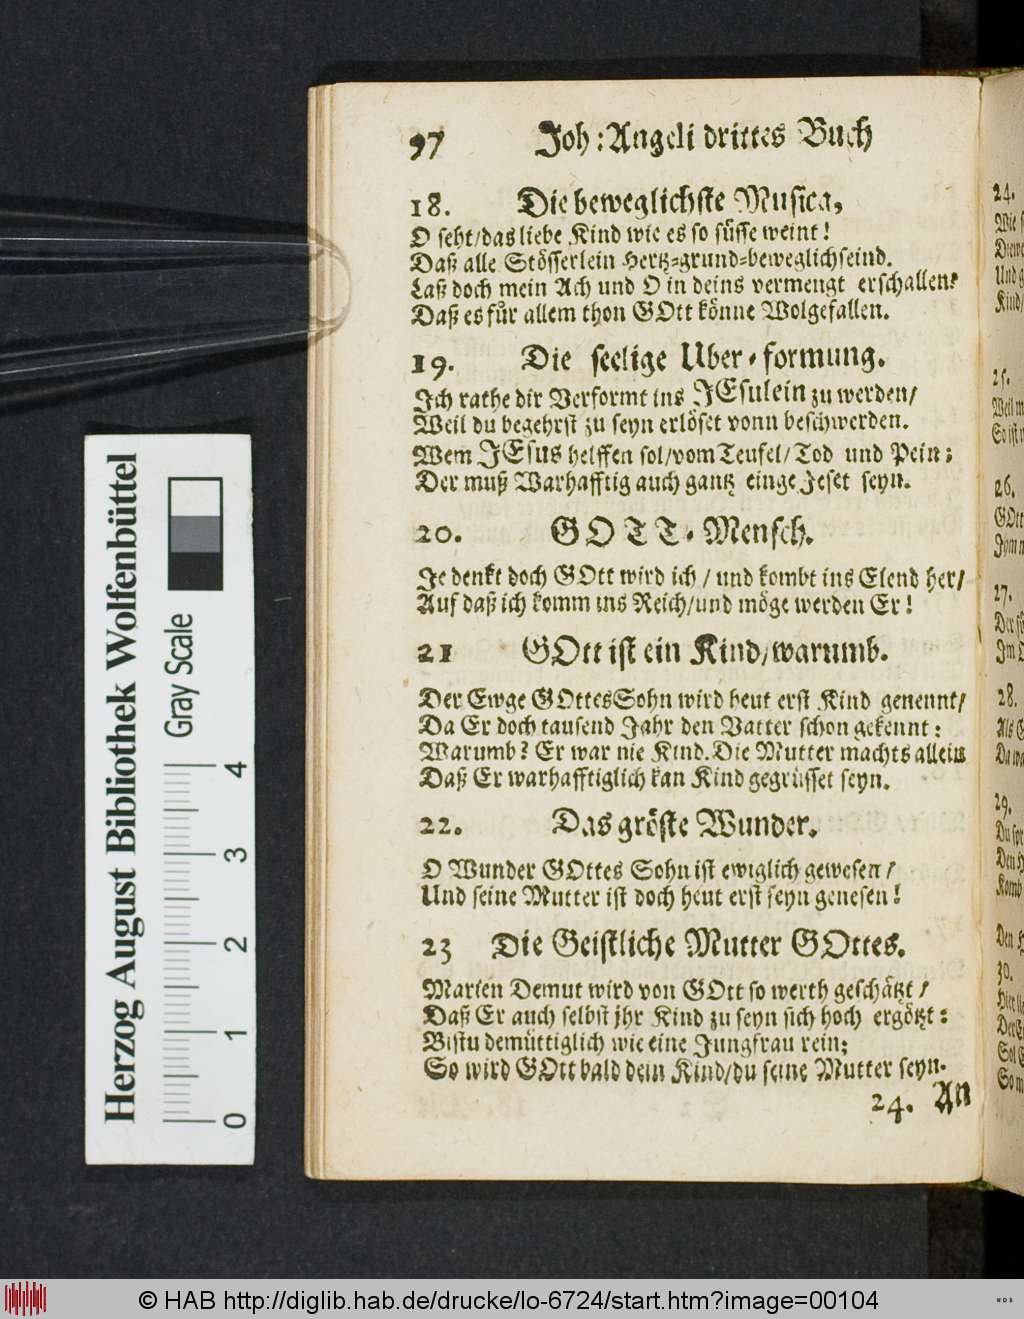 97 Joh: Angeli drittes Buch
18. Die beweglichste Musica,
O seht/das liebe Kind wie es so süsse weint!
Daß alle Stösserlein Hertz-grund-beweglich seind.
Laß doch mein Ach und O in deins vermengt erschallen/
Daß es für allem thon GOtt könne Wolgefallen.
19. Die seelige Uber-formung.
Ich rathe dir Verformt ins JEsulein zu werden/
Weil du begehrst zu seyn erlöset vonn beschwerden.
Wem JEsus helffen sol/vom Teufel/Tod und Pein;
Der muß Warhafftig auch gantz eingeJeset seyn.
20. GOTT-Mensch.
Je denkt doch GOtt wird ich / und kombt ins Elend her/
Auf daß ich komm ins Reich/und möge werden Er!
21 GOtt ist ein Kind/warumb.
Der Ewge GOttes Sohn wird heut erst Kind genennt/
Da Er doch tausend Jahr den Vatter schon gekennt:
Warumb? Er war nie Kind. Die Mutter machts allein
Daß Er warhafftiglich kan Kind gegrüsset seyn.
22. Das gröste Wunder.
O Wunder GOttes Sohn ist ewiglich gewesen/
Und seine Mutter ist doch heut erst seyn genesen!
23 Die Geistliche Mutter GOttes.
Marien Demut wird von GOtt so werth geschätzt/
Daß Er auch selbst jhr Kind zu seyn sich hoch ergötzt:
Bistu demüttiglich wie eine Jungfrau rein;
So wird GOtt bald dein Kind/du seine Mutter seyn.
24. An
24.
25.
26.
27.
28.
29.
30.
Herzog August Bibliothek Wolfenbüttel
Gray Scale
0 1 2 3 4
© HAB http://diglib.hab.de/drucke/lo-6724/start.htm?image=00104